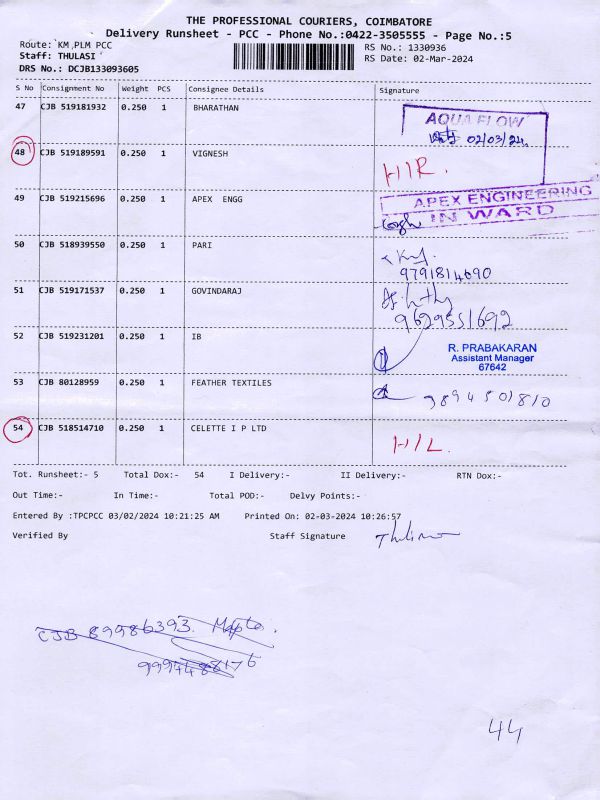 THE PROFESSIONAL COURIERS, COIMBATORE
Delivery Runsheet - PCC - Phone No.:0422-3505555 - Page No.:5
Route: KM,PLM PCC
RS No.: 1330936
Staff: THULASI
RS Date: 02-Mar-2024
DRS No.: DCJB133093605
S No Consignment No Weight PCS Consignee Details Signature
47 CJB 519181932 0.250 1 BHARATHAN
AQUA FLOW
02/03/24
48 CJB 519189591 0.250 1 VIGNESH H/R.
49 CJB 519215696 0.250 1 APEX ENGG APEX ENGINEERING
IN WARD
50 CJB 518939550 0.250 1 PARI
9791814690
51 CJB 519171537 0.250 1 GOVINDARAJ
9629551692
52 CJB 519231201 0.250 1 IB R. PRABAKARAN
Assistant Manager
67642
53 CJB 80128959 0.250 1 FEATHER TEXTILES 9894501810
54 CJB 518514710 0.250 1 CELETTE I P LTD H/L.
Tot. Runsheet:- 5 Total Dox:- 54 I Delivery:- II Delivery:- RTN Dox:-
Out Time:- In Time:- Total POD:- Delvy Points:-
Entered By :TPCPCC 03/02/2024 10:21:25 AM Printed On: 02-03-2024 10:26:57
Verified By Staff Signature
CJB 89986393
9994488176
44